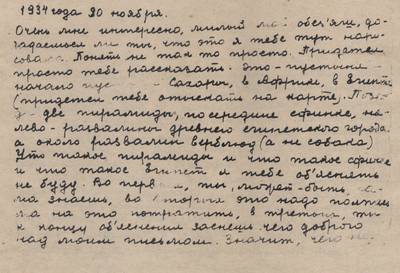 1934 года 20 ноября.
Очень мне интересно, милый мой обез'яш, до-
гадаешься ли ты, что это я тебе тут нари-
совала. Понять не так то просто. Придется
просто тебе рассказать: это - пустыня
начало Сахары, в Африке, в Египте
(придется тебе отыскать на карте).
две пирамиды, посередине сфинкс, на-
лево - развалины древнего египетского города
а около развалин верблюд (а не собака)
Что такое пирамиды и что такое сфинкс
и что такое Египет я тебе об'яснять
не буду. Во первых, ты, может-быть,
знаешь, во вторых это надо
на это потратить, в третьих, ты
к концу об'яснения заснешь чего доброго
над моим письмом. Значит,